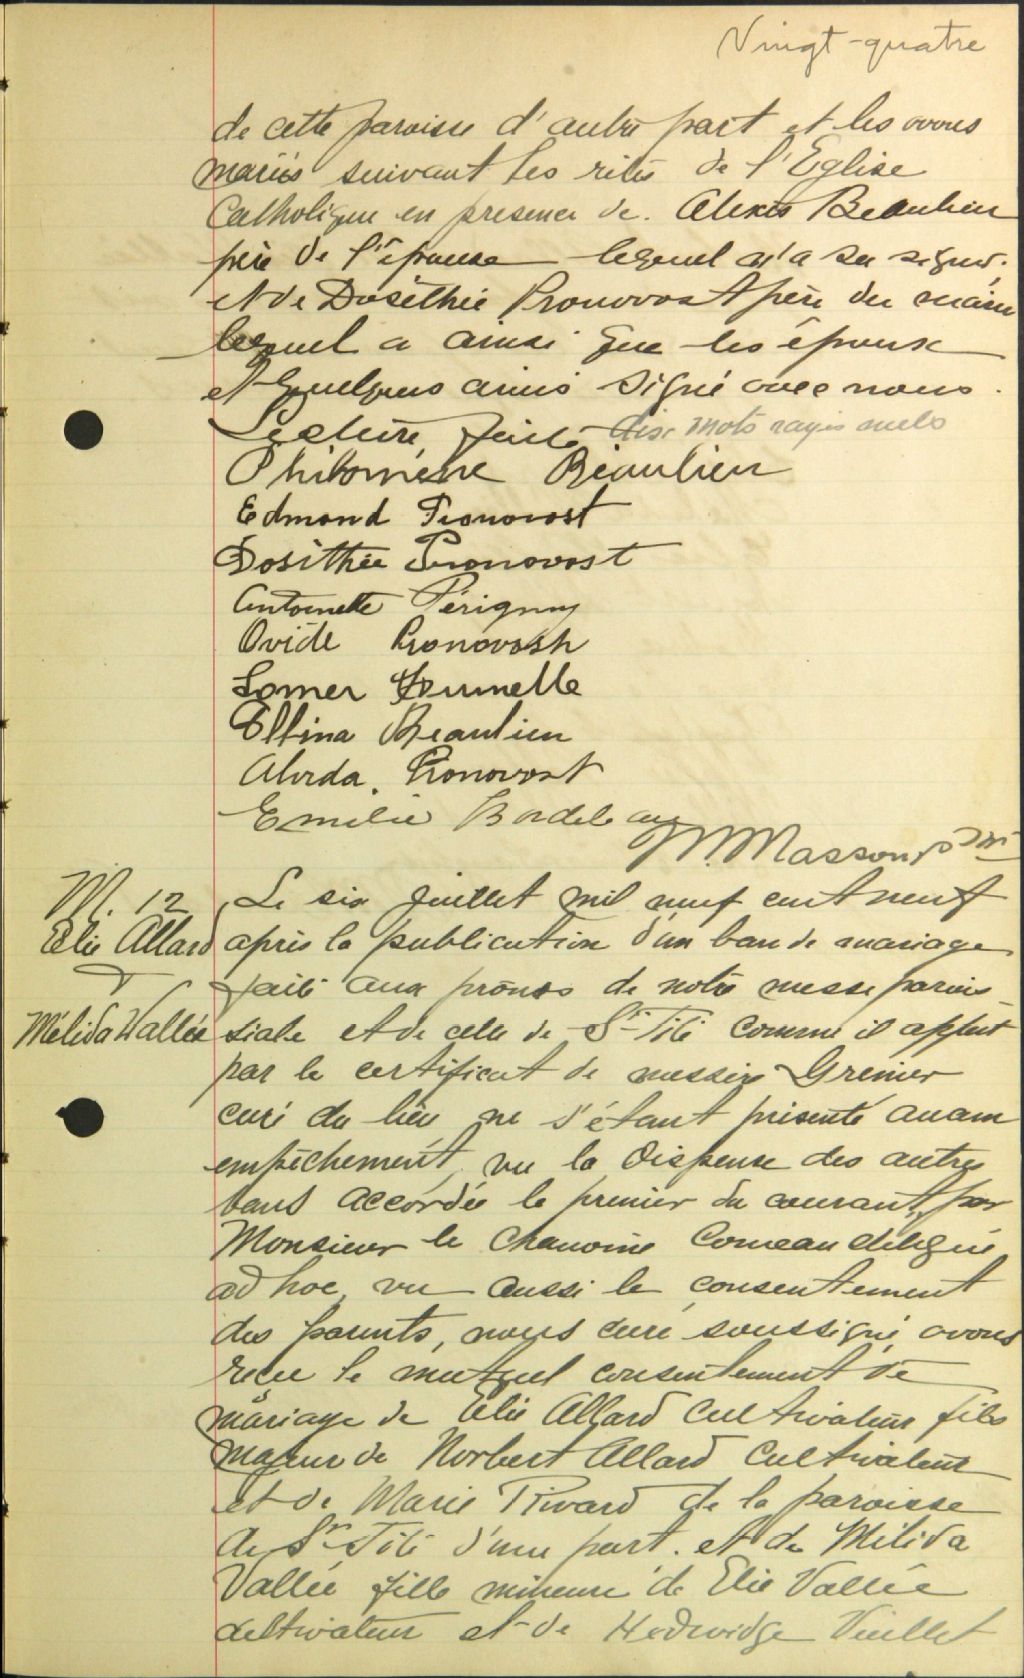 Vingt-quatre
de cette paroisse d'autre part et les avons
mariés suivant les rites de l'Eglise
Catholique en presence de. Alexis Beaulieu
père de l'épouse lequel n'a su signer.
et de Dosithée Pronovost père du marié
lequel a ainsi que les époux
et quelques amis signé avec nous.
Lecture faite dix mots rayés nuls
Philomène Beaulieu
Edmond Pronovost
Dosithée Pronovost
Antoinette Périgny
Ovide Pronovost
Trunelle
Elbina Beaulieu
Alvida. Pronovost
Emilie Bordeleau
M. Masson Ptre
M. 12
Elie Allard
&
Mélida Vallée
Le six juillet mil neuf cent neuf
après la publication d'un ban de mariage
faite aux prônes de notre messe parois
siale et de celle de St-Tite comme il appert
par le certificat de messire Grenier
curé du lieu ne s'étant présenté aucun
empêchement, vu la dispense des autres
bans accordée le premier du courant, par
Monsieur le Chanoine Comeau délégué
ad hoc, vu aussi le consentement
des parents, nous curé soussigné, avons
reçu le mutuel consentement de
mariage de Elie Allard cultivateur fils
majeur de Norbert Allard cultivateur
et de Marie Rivard de la paroisse
de St-Tite d'une part. et de Mélida
Vallée fille mineure de Elie Vallée
cultivateur et de Hedwidge Veillet